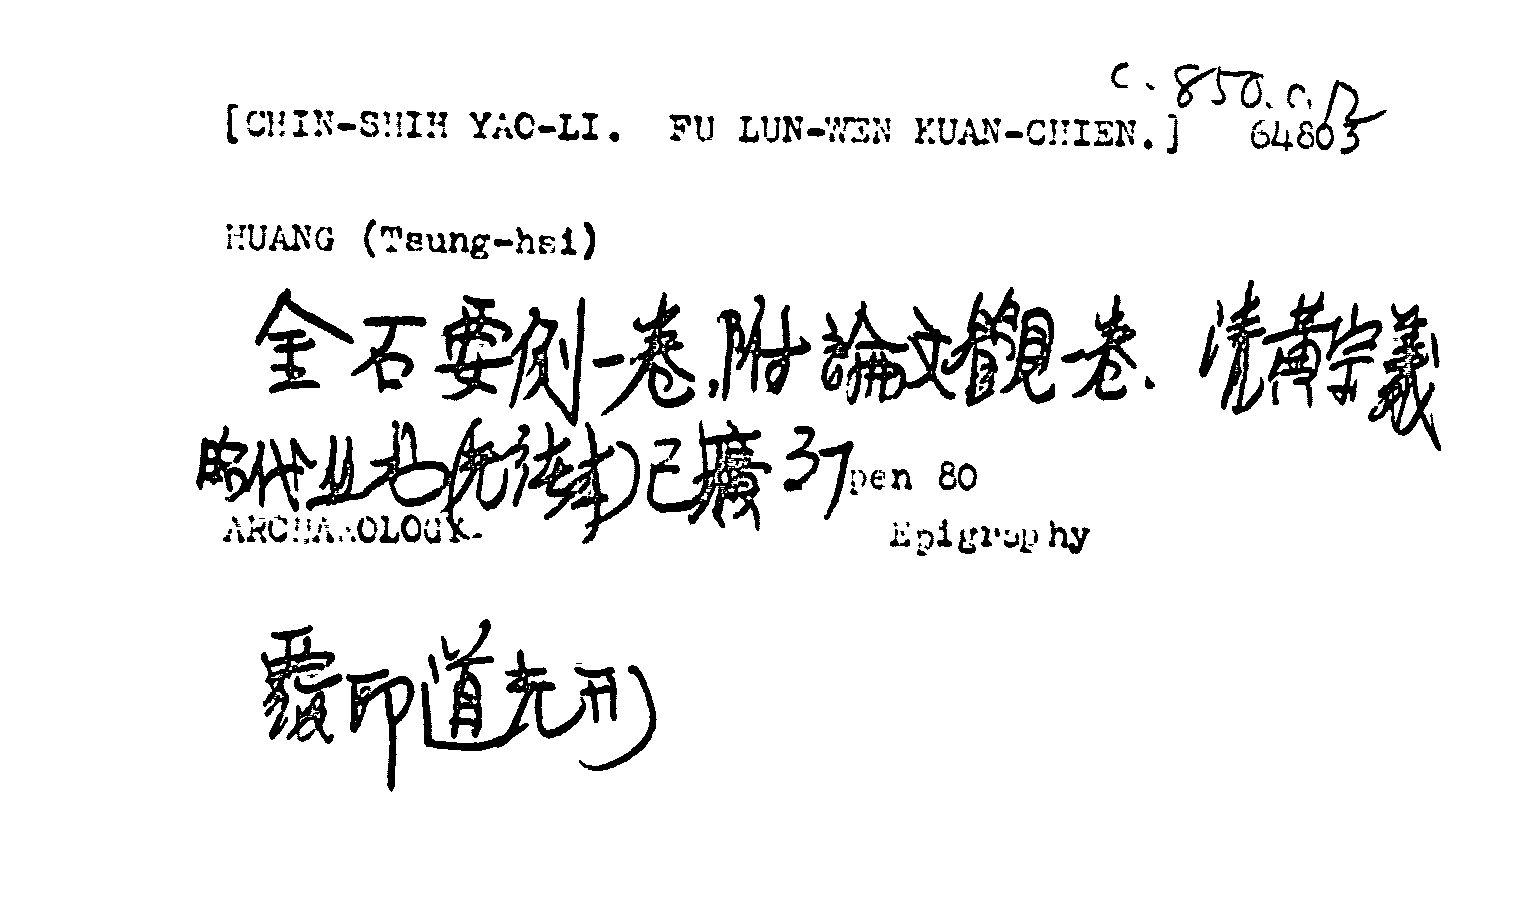 c. 850. c. 12
[CHIN-SHIH YAO-LI. FU LUN-WEN KUAN-CHIEN.] 64803
HUANG (Tsung-hsi)
金石要例一卷.附論文觀一卷. 清黃宗羲
昭代 pen 80
ARCHAEOLOGY. Epigraphy
覆印道光刊